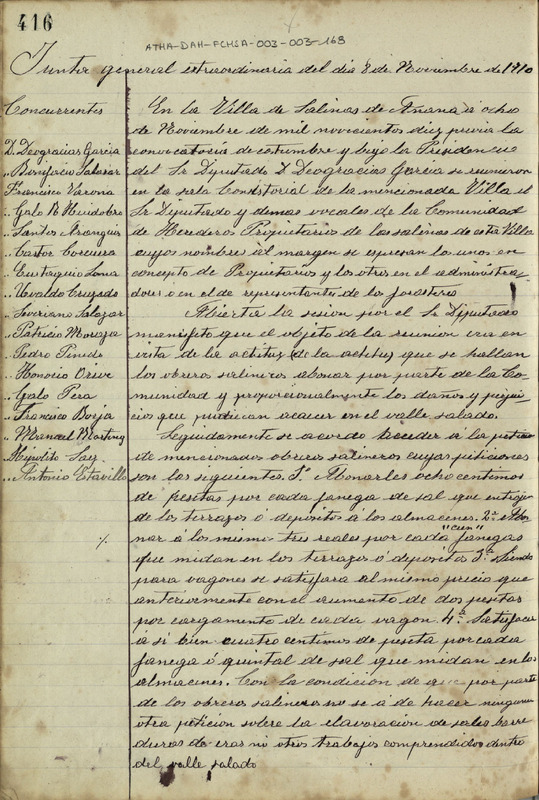 416
ATHA-DAH-FCHSA-003-003-168
Junta general extraordinaria del dia 8 de Noviembre de 1910
Concurrentes
D. Deogracias Garcia
" Bonifacio Salazar
Francisco Varona
" Galo B Huidobro
" Santos Aranguiz
" Castor Corcuera
" Eustaquio Loma
" Uvaldo Cruzado
" Severiano Salazar
" Patricio Moraza
" Pedro Pinedo
" Honorio Orive
" Galo Pera
" Francisco Borja
" Manuel Martinez
Hipolito Saez
" Antonio Etavillo
En la Villa de Salinas de Añana á ocho
de Noviembre de mil novecientos diez previa la
convocatoria de costumbre y bajo la Presidencia
del Sr Diputado D Deogracias Garcia se reunieron
en la sala Consistorial de la mencionada Villa el
Sr Diputado y demas vocales de la Comunidad
de Herederos Propietarios de las salinas de esta Villa
cuyos nombres al margen se espresan los unos en
concepto de Propietarios y los otros en el administra
dores o en el de representantes de los forasteros
Abierta la sesion por el Sr Diputado
manifesto que el objeto de la reunion era en
vista de la actitus (de la actitus) que se hallan
los obreros salineros abonar por parte de la Co-
munidad y proporcionalmente los daños y perjui
cios que pudieran acaecer en el valle salado.
Seguidamente se acordo acceder á la peticion
de mencionados obreros salineros cuyas peticiones
son las siguientes. 1º Abonarles ocho centimos
de pesetas por cada fanega de sal que entrojen
de los terrazos ó depositos á los almacenes. 2º Abo
nar á los mismo tres reales por cada "cien" fanegas
que midan en los terrazos ó depositos 3ª Siendo
para vagones se satisfara al mismo precio que
anteriormente con el aumento de dos pesetas
por cargamento de cada vagon. 4ª Satisfacer
á si bien cuatro centimos de peseta por cada
fanega ó quintal de sal que midan en los
almacenes. Con la condicion de que por parte
de los obreros salineros no se á de hacer ninguna
otra peticion sobre la elavoracion de sales barre
duras de eras ni otros trabajos comprendidos dentro
del valle salado